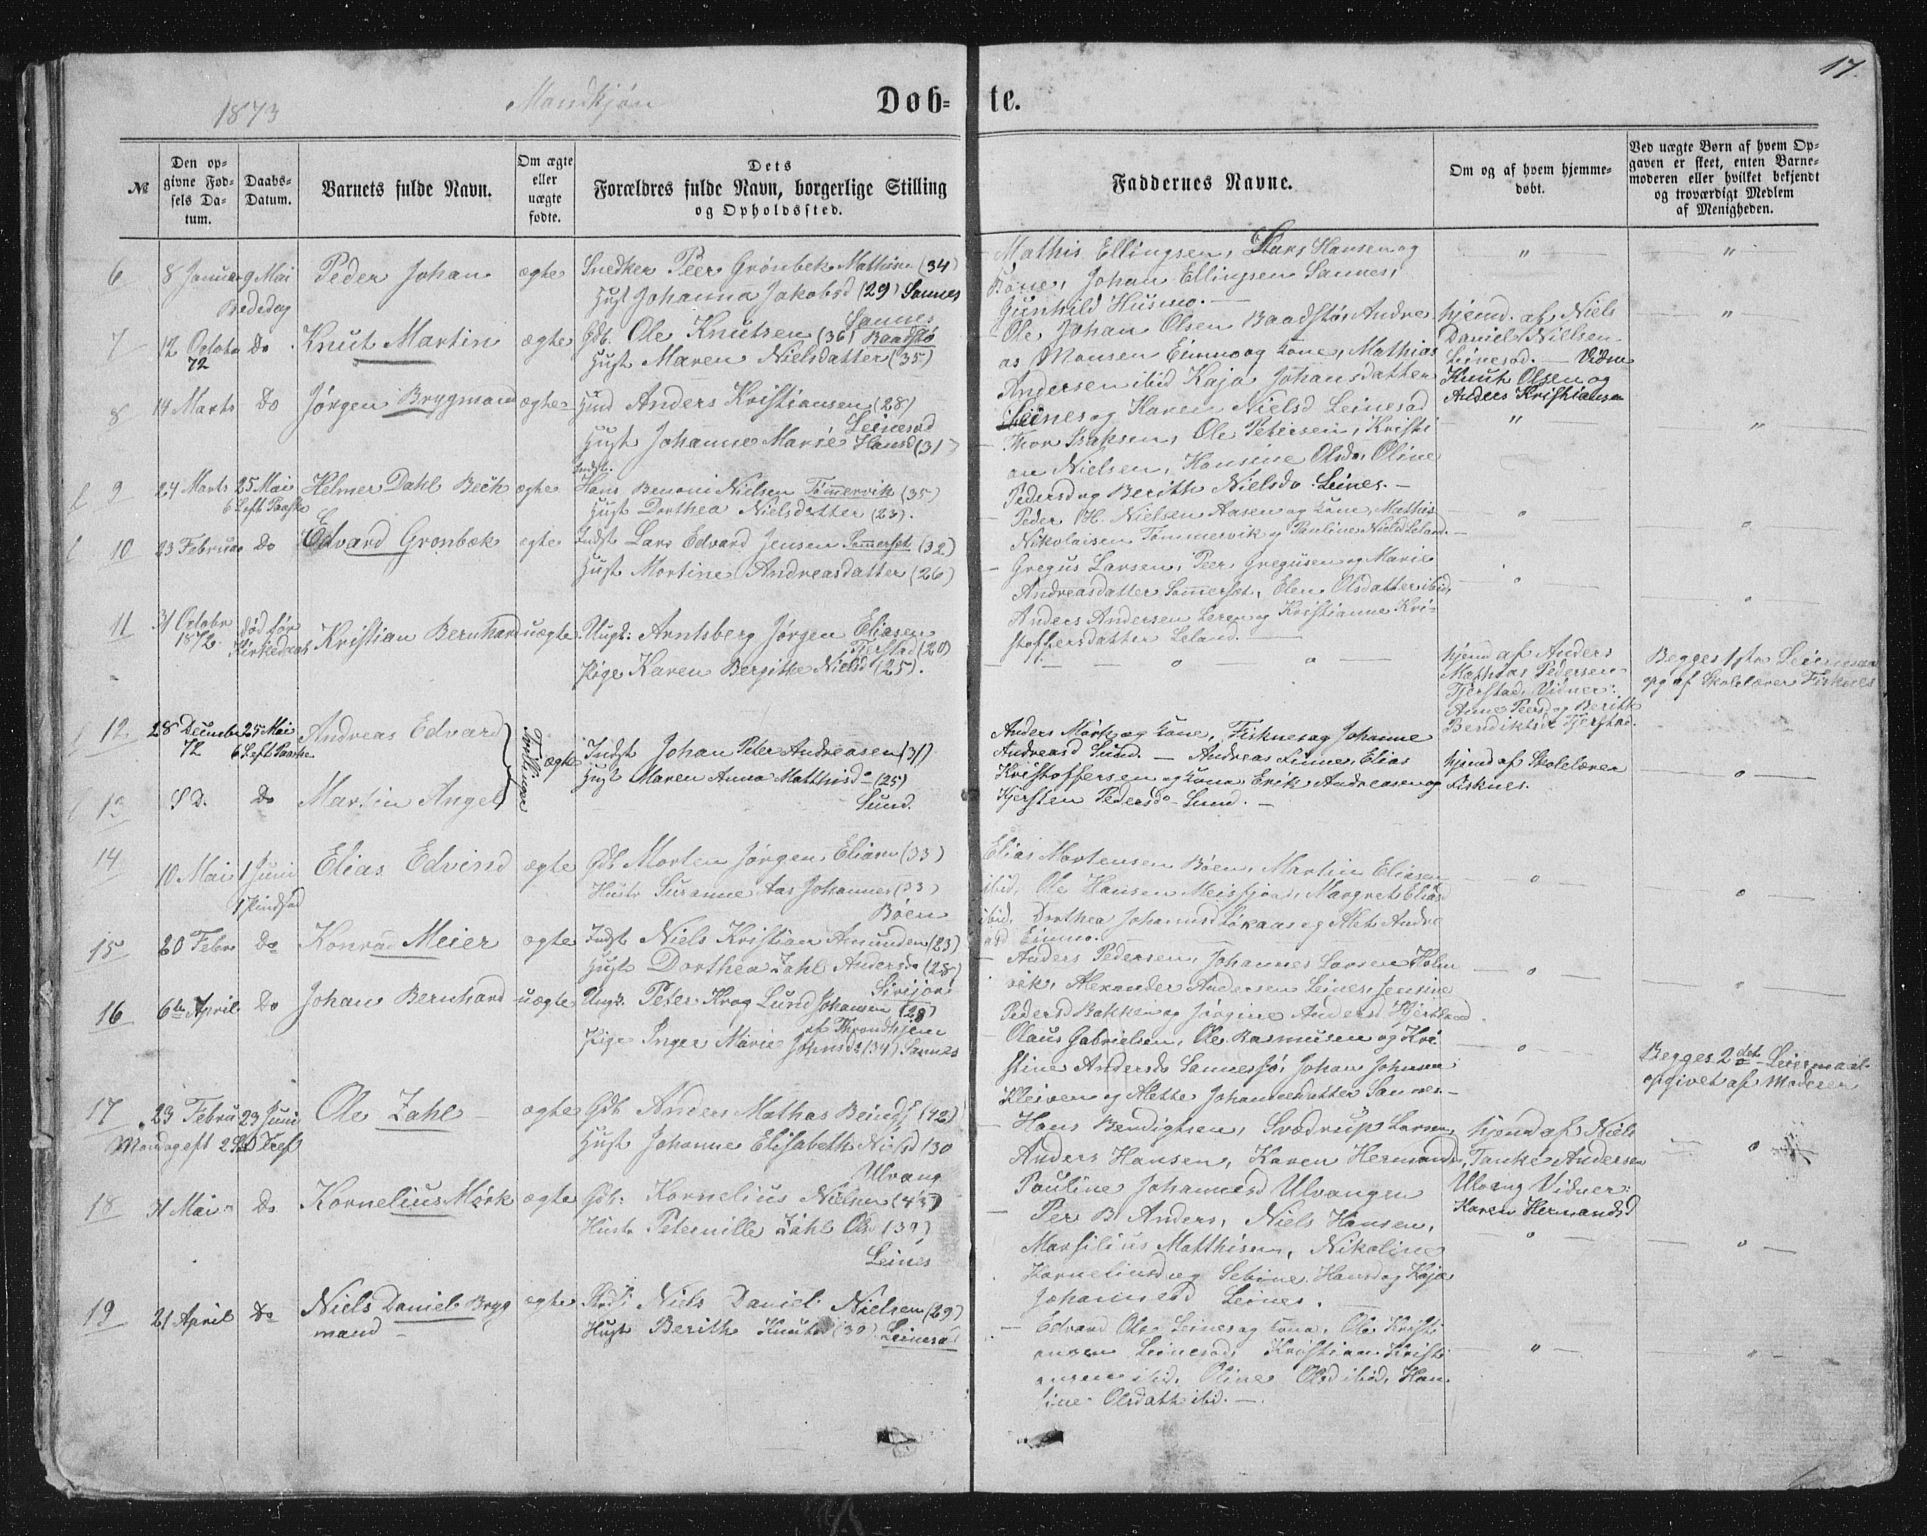 17.
1873
Mandkjøn
Døb= te.
№
Den op=
givne Fød=
sels Da=
tum.
Daabs=
Datum.
Barnets fulde Navn.
Om ægte
eller
uægte
fødte.
Dets
Forældres fulde Navn, borgerlige Stilling
og Opholdssted.
Faddernes Navne.
Om og af hvem hjemme=
døbt.
Ved uægte Børn af hvem Op=
gaven er skeet, enten Barne=
moderen eller hvilket bekjendt
og troværdigt Medlem
af Menigheden.
6
8 Januar
9 Mai
Bededag
Peder Johan
ægte
Snedker Peer Grønbek Mathisen (34)
Hust Johanna Jakobsd (29) Sannes
Mathis Ellingsen, Lars Hansen og
Kone, Johan Ellingsen Sannes,
Gunhild Husmo. —
"
"
7
12 Octobr
72
Do
Knut Martin
ægte
Gdb. Ole Knutsen (36) Sannes Baadstø
Hust Maren Nielsdatter (35)
Ole Johan Olsen Baadstø, Andre
as Monsen Einmo og Kone, Mathias
Andersen ibid Kaja Johansdatter
Leines og Karen Nielsd Leinesod
hjemd. af Niels
Daniel Nielsen
Leinesod. — Vidne
Knut Olsen og
Anders Kristiansen
"
8
14 Marts
Do
Jørgen Brygmand
ægte
Hmd Anders Kristiansen (28)
Leinesod
Hust Johanne Marie Hansd (31)
Thor Isaksen, Ole Petersen, Kristi
an Nielsen, Hansine Olsd, Oline
Pedersd og Berith Nielsd Leines. —
"
"
9
24 Marts
25 Mai
6 S eft Paaske
Helmer Dahl Beck
ægte
Indst.
Hans Benoni Nielsen Tømmervik (35)
Hust Dorthea Nielsdatter (23).
Peder H. Nielsen Aasen og Kone, Mathis
Nikolaisen Tømmervik og Pauline Nielsd Leland. —
10
23 Februar
Do
Edvard Gronbæk
ægte
Indst Lars Edvard Jensen Sommerset (32)
Hust Mortine Andreasdatter (26)
Gregus Larsen, Peer Gregusen og Marie
Andreasdatter Sommerset, Elen Olsdatter ibid,
Anders Andersen og Kristianne Kri-
stoffersdatter Leland. —
11
31 Octobr
1872
død før
Kirkedaab
Kristian Bernhard
uægte
Ungk: Arntsberg Jørgen Eliasen
Tjerstad (20)
Pige Karen Bergitte Nielsd (25).
hjemd af Anders
Mathias Pedersen
Tjerstad, Vidner:
Anne Peersd og Berith
Bendiktsd Tjerstad.
Begges 1ste Leiermaal
opg af Skolelærer Fisknes
12
28 Decembr
72
25 Mai
6 S eft Paaske
Andreas Edvard
Tvillinger
ægte
Indst Johan Peter Andreasen (31)
Hust Maren Anna Matthisd (25)
Sund.
Anders Mørk og Kone, Fisknes og Johanne
Andreasd Sund. — Andreas Linnes, Elias
Kristoffersen og Kone Erik Andreasen og
Kjersten Pedersd Sund. —
hjemd af Skolelærer
Fisknes.
13
S D.
Do
Martin Angel
14
10 Mai
1 Juni
1 Pindsed
Elias Edvind
ægte
Gdb Morten Jørgen Eliasen (33)
Hustr Susanne Aas Johannesd (33)
Bøen
Elias Mortensen Bøen, Martin Eliasen
ibid, Ole Hansen Meisfjord, Margret Eliasd
ibid, Dorthea Johannesd og Alet Andre
asd Einmo.
15
20 Febr
Do
Konrad Meier
ægte
Indst Niels Kristian Amundsen (23)
Hust Dorthea Zahl Andersd (28)
Anders Pedersen, Johannes Larsen Holm
vik, Alexander Andersen Leines, Jensine
Pedersd Bakken og Jørgine Andersd
16
6te April
Do
Johan Bernhard
uægte
Ungk. Peter Krog Lund Johansen (28)
af Throndhjem
Pige Inger Marie Johnsd (34) Sannes
Olaus Gabrielsen, Ole Rasmussen og Kri
stine Andersd Sannes, Johan Johnsen
Kleiven og Alette Johannesdatter Sannes —
Begges 2det Leiermaal
opgivet af Moderen
17
23 Februar
23 Juni
Mandag eft 2 S eft Tref
Ole Zahl
ægte
Gdb Anders Mathias Bendigts (42)
Hust Johanne Elisabeth Nilsd (30
Ulvang
Hans Bendigtsen, Sverdrup Larsen,
Anders Hansen, Karen Hermansd,
Pauline Johannesd Ulvangen
hjemd af Niels
Tanke Andersen
Ulvang Vidner:
Karen Hermansd
18
31 Mai
Do
Kornelius Mørk
ægte
Gdb: Kornelius Nielsen (45)
Hustr Peternille Zahl Olsd (39)
Leines
Per B Anders, Niels Hansen,
Marsilius Matthisen, Nikoline
Korneliusd og Sebine Hansd og Kaja
Johannesd Leines.
19
21 April
Do
Niels Daniel Bryg
mand —
ægte
Niels Daniel Nielsen (29)
Hust Berith Knutsd (30) Leinesod
Edvard Ols Leines og Kone, Ole Kristi
ansen Leinesod, Kristian Kristi
ansen ibid, Oline Olsd ibid, Han
sine Olsdatt ibid. —